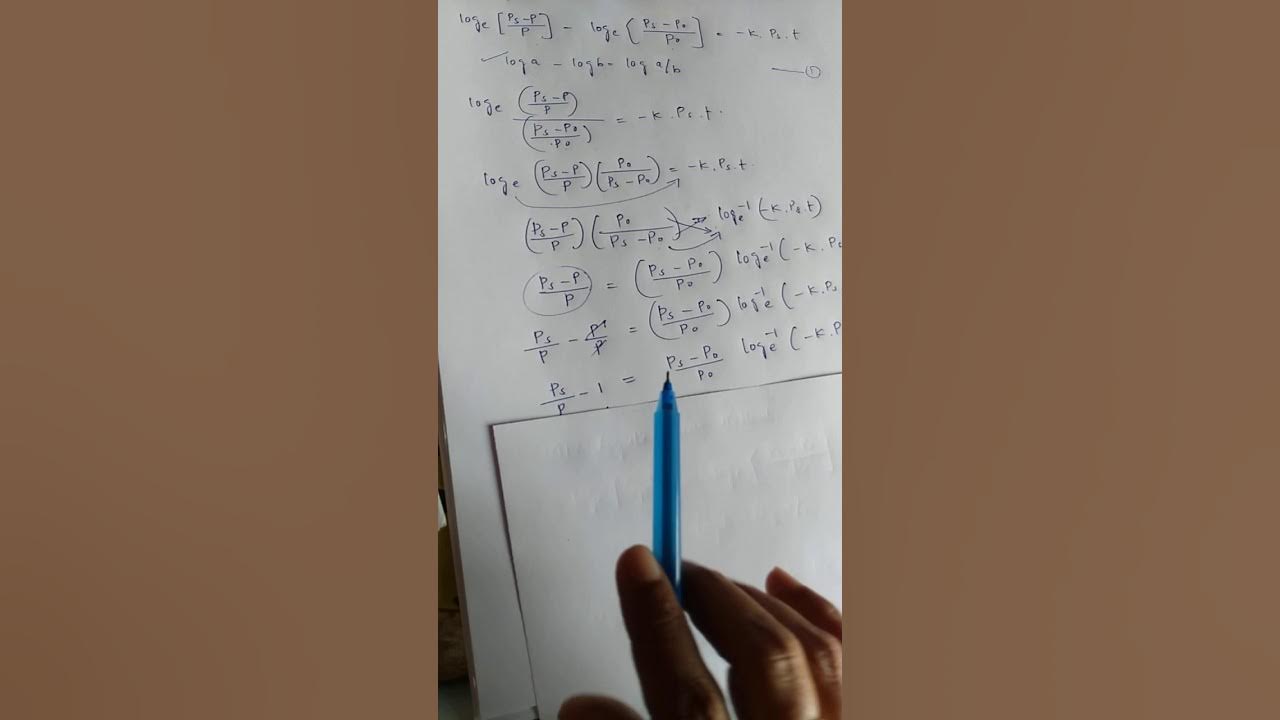 loge [Ps-P/P] - loge [Ps-Po/Po] = -K.Ps.t
✓loga - logb = log a/b —①
loge (Ps-P/P)/(Ps-Po/Po) = -K.Ps.t.
loge (Ps-P/P)(Po/Ps-Po) = -K.Ps.t.
(Ps-P/P)(Po/Ps-Po) = loge⁻¹(-K.Ps.t)
Ps-P/P = (Ps-Po/Po) loge⁻¹(-K.P
Ps/P - P/P = (Ps-Po/Po) loge⁻¹(-K.Ps
Ps/P - 1 = Ps-Po/Po loge⁻¹(-K.P